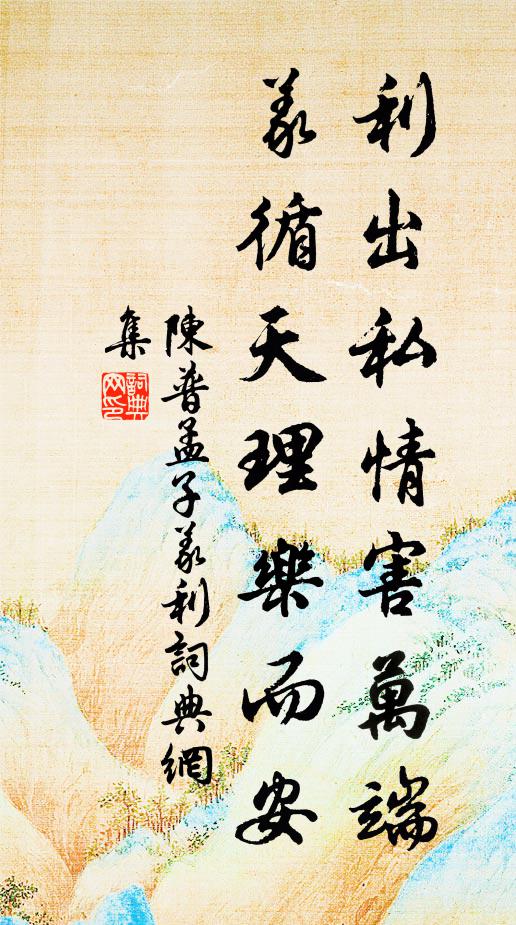 利出私情害萬端
義循天理樂而安
陳普孟子義利詞典網
集
詞典網印